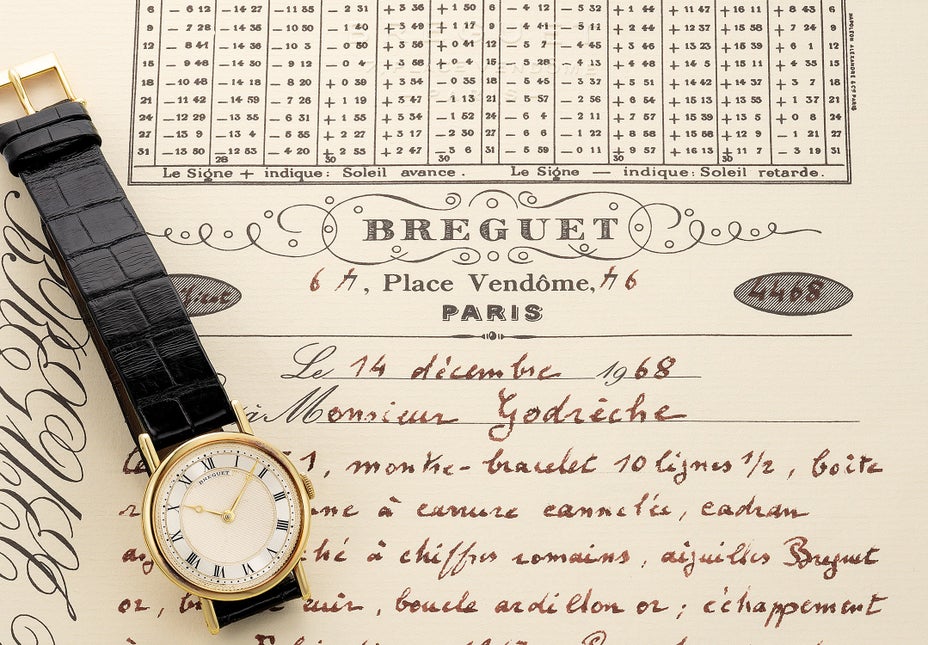 6 — 6 12 — 14 27 — 11 55 — 2 31 + 3 36 + 1 50 6 — 4 12 — 5 11 + 11 + 15 + 8 43 6
9 — 7 28 — 14 35 — 10 50 — 1 40 + 3 49 + 1 17 9 — 4 41 — 5 2 + 12 + 16 + 7 26 9
12 — 8 41 — 14 36 — 10 3 — 0 50 + 3 56 + 0 41 12 — 5 7 — 4 45 + 3 46 + 13 23 + 15 39 + 6 1 12
15 — 9 48 — 14 30 — 9 12 — 0 4 + 3 58 + 0 4 15 — 5 28 — 4 13 + 14 15 + 15 11 + 4 35 15
18 — 10 48 — 14 18 — 8 20 + 0 39 + 3 54 — 0 35 18 — 5 45 — 3 37 + 5 51 + 14 42 + 14 37 + 3 7 18
21 — 11 42 — 14 59 — 7 26 + 1 19 + 3 47 — 1 13 21 — 5 57 — 2 56 + 6 54 + 15 13 + 13 55 + 1 37 21
24 — 12 29 — 13 35 — 6 31 + 1 55 + 3 34 — 1 52 24 — 6 4 — 2 11 + 7 57 + 15 39 + 13 5 + 0 8 24
27 — 13 9 — 13 4 — 5 36 + 2 27 + 3 17 — 2 30 27 — 6 6 — 1 22 + 8 58 + 15 58 + 12 9 — 1 21 27
31 — 13 50 28 — 4 20 + 2 55 30 + 2 47 — 3 6 30 31 — 5 59 — 0 11 + 9 57 30 + 16 13 + 11 7 30 — 3 19 31
Le Signe + indique: Soleil avance. Le Signe — indique: Soleil retarde.
NAPOLEON ALEXANDRE & Cie PARIS
BREGUET
6 7, Place Vendôme, 76
4468
PARIS
Le 14 décembre 1968
à Monsieur Godrèche
1, montre-bracelet 10 lignes 1/2, boîte
à carrure cannelée, cadran
à chiffres romains, aiguilles Breguet
or, cuir, boucle ardillon or; échappement
BREGUET